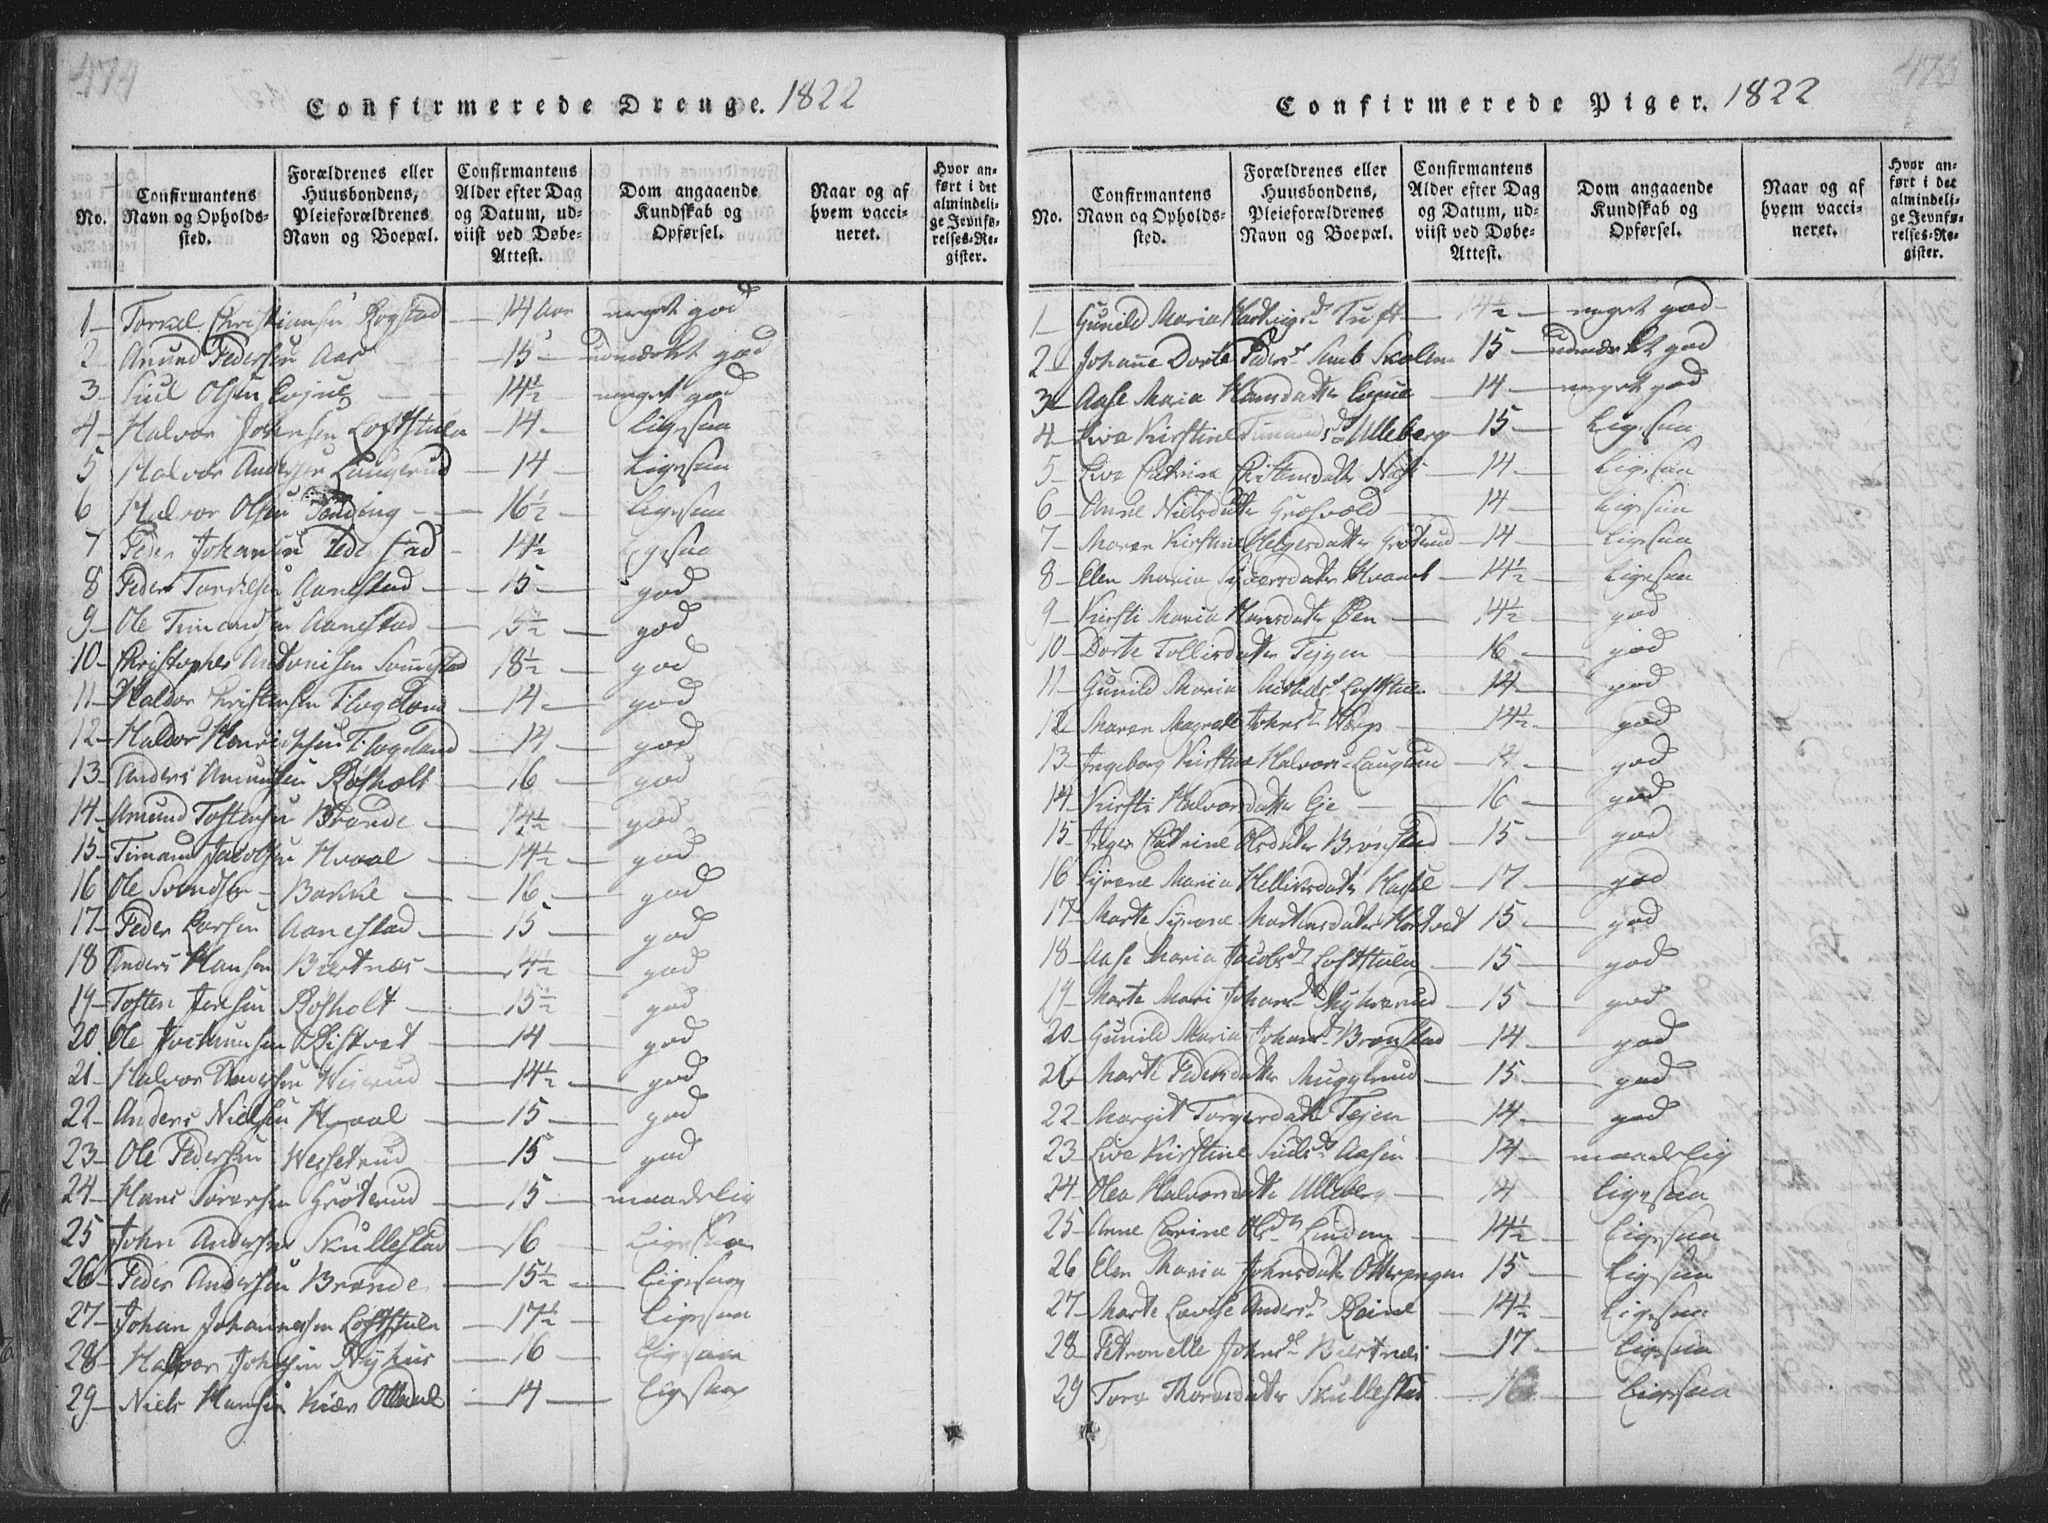 474
Confirmerede Drenge. 1822
No.
Confirmantens Navn og Opholdssted.
Forældrenes eller Huusbondens, Pleieforældrenes Navn og Boepæl.
Confirmantens Alder efter Dag og Datum, udviist ved Døbe-Attest.
Dom angaaende Kundskab og Opførsel.
Naar og af hvem vaccineret.
Hvor anført i det almindelige Jevnførelses-Register.
1 Torkel Christiansen Rogstad 14 Aar meget god
2 Amund Pedersen Aas 15 udmærket god
3 Siul Olsen Evjue 14½ meget god
4 Halvor Johnsen Loftstuen 14 ligesaa
5 Halvor Andersen Laugerud 14 Ligesaa
6 Halvor Olsen 16½ Ligesaa
7 Peder Johansen 14½ Ligesaa
8 Peder Torkelsen Aanestad 15 god
9 Ole Timandsen Aanestad 15½ god
10 Christopher Antonisen 18½ god
11 Haldor Christensen Flogeland 14 god
12 Haldor Henrichsen Flogeland 14 god
13 Anders Amundsen Røsholt 16 god
14 Amund Tostensen Brønde 14½ god
15 Timand Jacobsen Hvaal 14½ god
16 Ole Svendsen Bakke 16 god
17 Peder Larsen Aanestad 15 god
18 Anders Hansen Biertnæs 14½ god
19 Tosten Jensen Rosholt 15½ god
20 Ole Ristvet 14 god
21 Halvor Andersen 14½ god
22 Anders Nielsen Hvaal 15 god
23 Ole Pedersen Wessetrud 15 god
24 Hans Sørensen Grøterud 15 maadelig
25 John Andersen Skullestad 16 Ligesaa
26 Peder Andersen Brønde 15½ Ligesaa
27 Johan Johannessen Loftstuen 17½ Ligesaa
28 Halvor Johnsen Nyhus 16 Ligesaa
29 Niels Hansen 14 Ligesaa
475
Confirmerede Piger. 1822
No.
Confirmantens Navn og Opholdssted.
Forældrenes eller Huusbondens, Pleieforældrenes Navn og Boepæl.
Confirmantens Alder efter Dag og Datum, udviist ved Døbe-Attest.
Dom angaaende Kundskab og Opførsel.
Naar og af hvem vaccineret.
Hvor anført i det almindelige Jevnførelses-Register.
1 Gunild Maria Tuft 14½ meget god
2 Johanne Dorte Peders 15 udmærket god
3 Aase Maria Hansdatter Evjue 14 meget god
4 Liva Kirstine Ulleberg 15 Ligesaa
5 Liva Catrine 14 Ligesaa
6 Anne Nielsdatter Græsvold 14 Ligesaa
7 Maren Kirstine Helgesdatter Grøterud 14 Ligesaa
8 Elen Maria 14½ Ligesaa
9 Kirsti Maria Hansdatter Øen 14½ god
10 Dorte Tollevsdatter Tejgen 16 god
11 Gunild Maria Loftstuen 14 god
12 Maren 14½ god
13 Ingeborg Kirstine Halvors 14 god
14 Kirsti Halvorsdatter Eje 16 god
15 Inger Catrine Olsdatter Brønstad 15 god
16 Syrene Maria Hellixsdatter 17 god
17 Marte Syrene Mortensdatter 15 god
18 Aase Maria Jacobsd Loftstuen 15 god
19 Marte Mari Johansd 15 god
20 Gunild Maria Johansd Brønstad 14 god
21 Marte Pedersdatter Muggerud 15 god
22 Margit Torgersdatter Tejen 14 god
23 Liva Kirstine Aasen 14 maadelig
24 Olea Halvorsdatter Ulleberg 14 ligesaa
25 Anne Carine Olsd 14½ Ligesaa
26 Elen Maria Johnsdatter 15 Ligesaa
27 Marte Lovise Andersd 14½ Ligesaa
28 Petronelle Johnsd Biertnæs 17 Ligesaa
29 Tore Thoresdatter Skullestad 16 Ligesaa